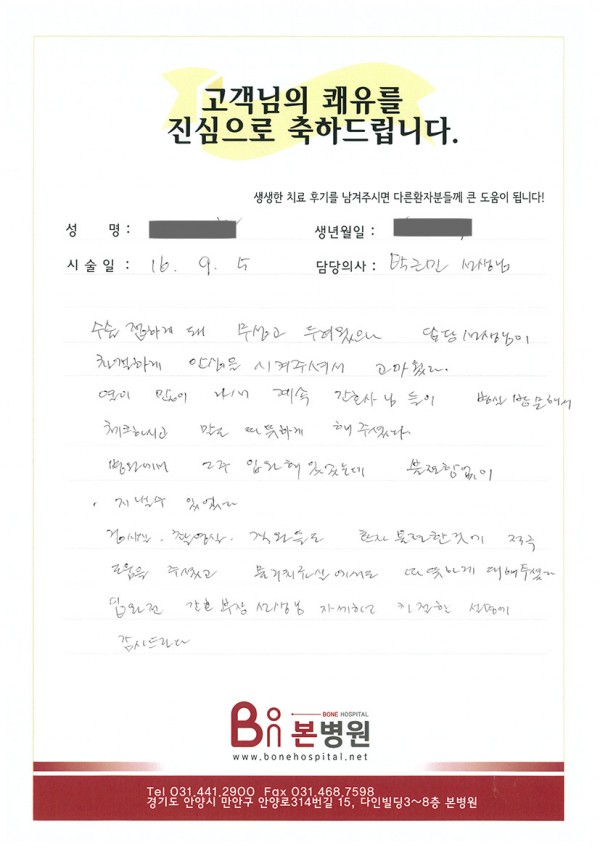 고객님의 쾌유를
진심으로 축하드립니다.
생생한 치료 후기를 남겨주시면 다른환자분들께 큰 도움이 됩니다!
성 명 :
생년월일 :
시술일 : 16. 9. 5
담당의사 : 박근민 선생님
수술 접하게 돼 무섭고 두려웠으나 담당 선생님이
친절하게 안심을 시켜주셔서 고마웠다.
열이 많이 나서 계속 간호사님들이 병실 방문해서
체크하시고 말도 따뜻하게 해 주셨다.
병원에서 2주 입원해 있었는데 불편함없이
지낼수 있었다
검사실. 촬영실. 직원들도 환자 불편한것에 적극
도움을 주셨고 물리치료실에서도 따뜻하게 대해주셨다
퇴원전 간호부장 선생님 자세하고 친절한 설명에
감사드린다
BONE HOSPITAL
본병원
www.bonehospital.net
Tel 031.441.2900 Fax 031.468.7598
경기도 안양시 만안구 안양로314번길 15, 다인빌딩3~8층 본병원